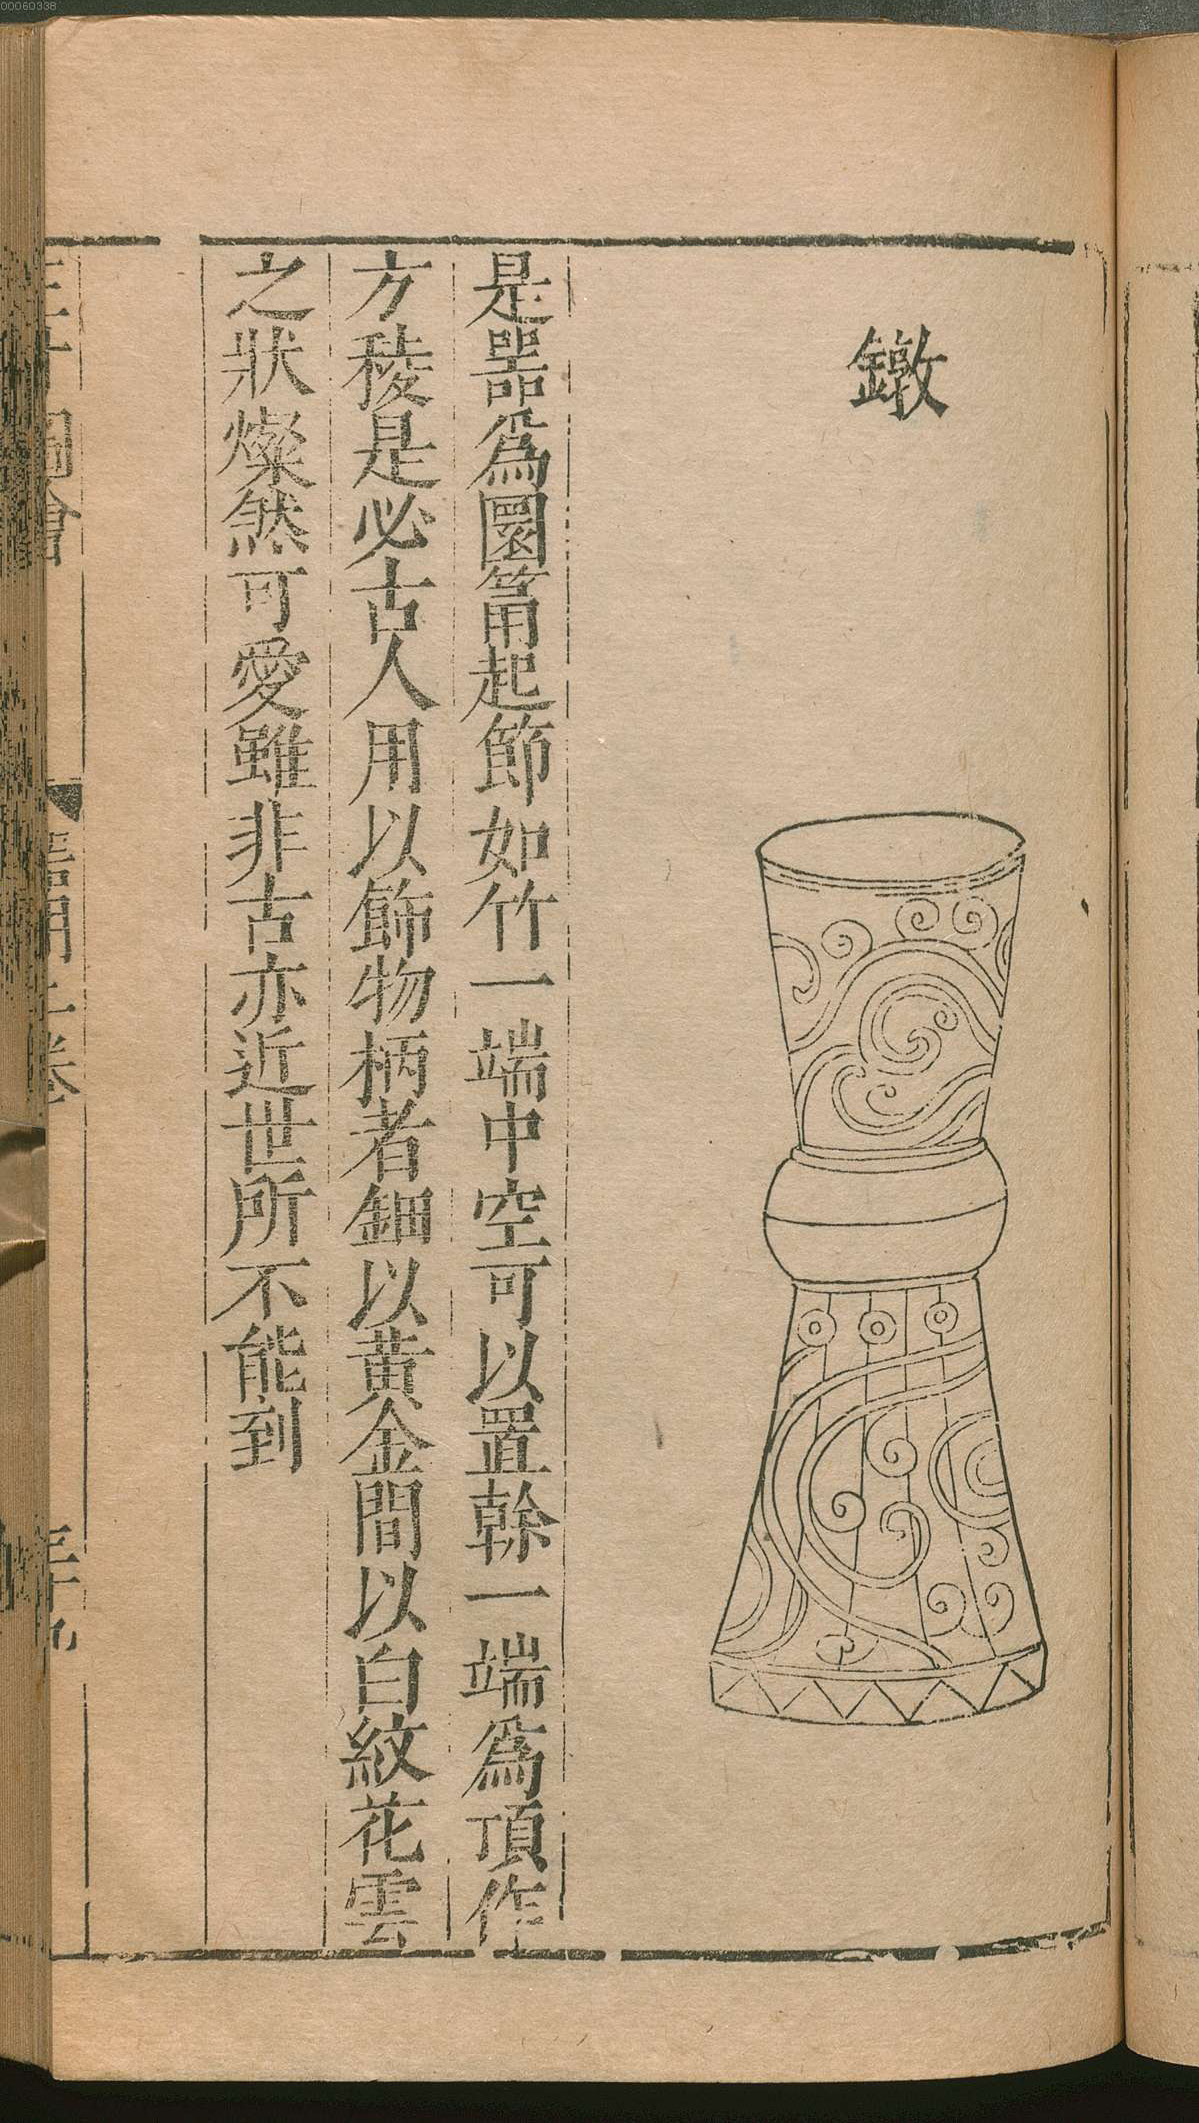 00060338
鐓
是器爲圜筩起節如竹一端中空可以置榦一端爲頂作
方稜是必古人用以飾物柄者鈿以黄金間以白紋花雲
之狀燦然可愛雖非古亦近世所不能到
三才圖會
器用二卷
三十九